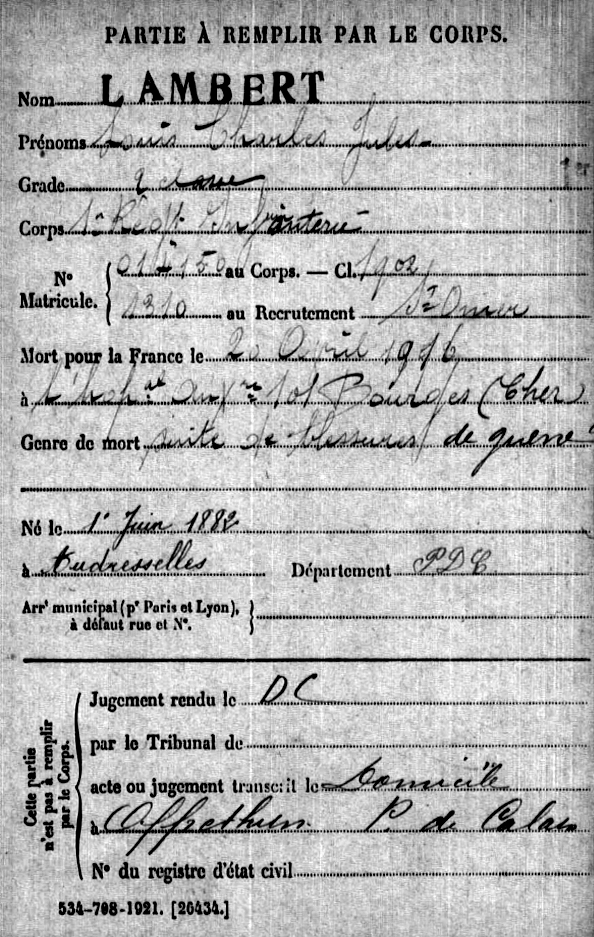 PARTIE À REMPLIR PAR LE CORPS.
Nom LAMBERT
Prénoms Louis Charles Jules
Grade 2e classe
Corps 1er Régt Infanterie
N° Matricule. 014150 au Corps. — Cl. 1902
1310 au Recrutement St Omer
Mort pour la France le 20 Avril 1916
à l'hôp al auxre 101 Bourges (Cher)
Genre de mort suite de blessures de guerre
Né le 1er Juin 1882
à Audresselles Département PDC
Arrt municipal (pr Paris et Lyon),
à défaut rue et N°.
Cette partie n'est pas à remplir par le Corps.
Jugement rendu le DC
par le Tribunal de
acte ou jugement transcrit le Domicile
à Offrethun P. de Calais
N° du registre d'état civil
534-708-1921. [26434.]